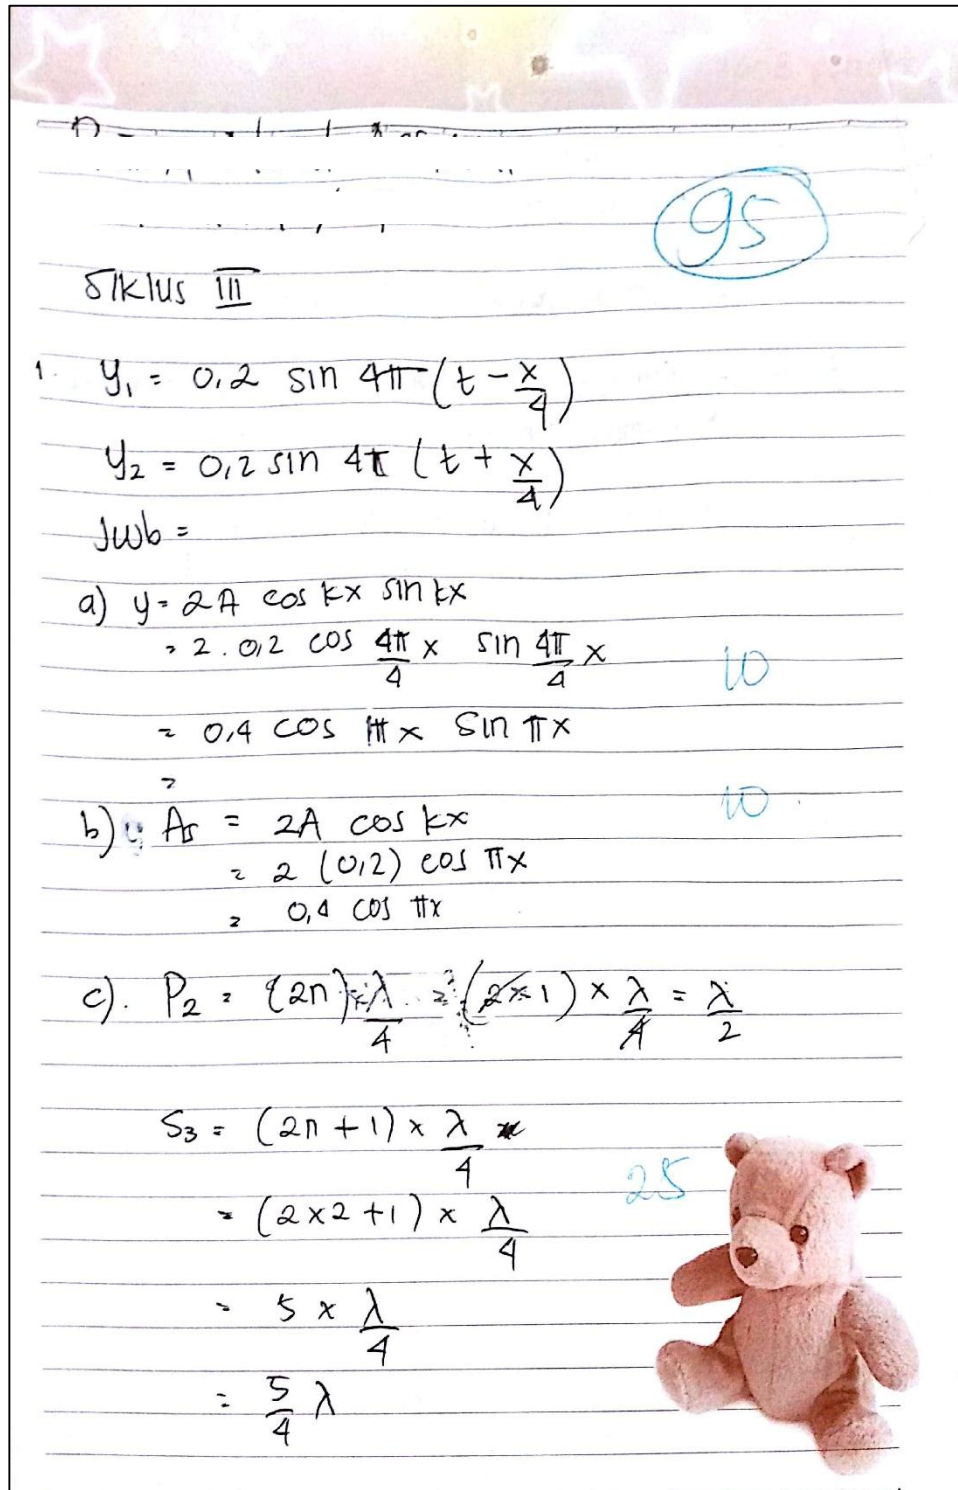 95
SIKlus III
1. y₁ = 0,2 sin 4π (t - x/4)
y₂ = 0,2 sin 4π (t + x/4)
Jwb =
a) y = 2A cos kx sin kx
= 2 . 0,2 cos 4π/4 x sin 4π/4 x
10
= 0,4 cos πx sin πx
=
10
b) As = 2A cos kx
= 2 (0,2) cos πx
= 0,4 cos πx
c). P₂ = (2n) × λ/4 = (2×1) × λ/4 = λ/2
S₃ = (2n + 1) × λ/4
25
= (2 × 2 + 1) × λ/4
= 5 × λ/4
= 5/4 λ